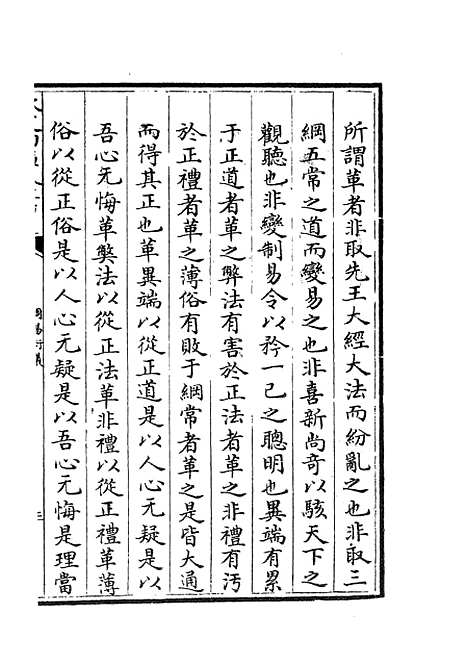 所謂革者非取先王大經大法而紛亂之也非取三
綱五常之道而變易之也非喜新尚奇以駭天下之
觀聽也非變制易令以矜一己之聰明也異端有累
于正道者革之弊法有害於正法者革之非禮有汚
於正禮者革之薄俗有敗于綱常者革之是皆大通
而得其正也革異端以從正道是以人心无疑是以
吾心无悔革弊法以從正法革非禮以從正禮革薄
俗以從正俗是以人心无疑是以吾心无悔是理當
周易衍義